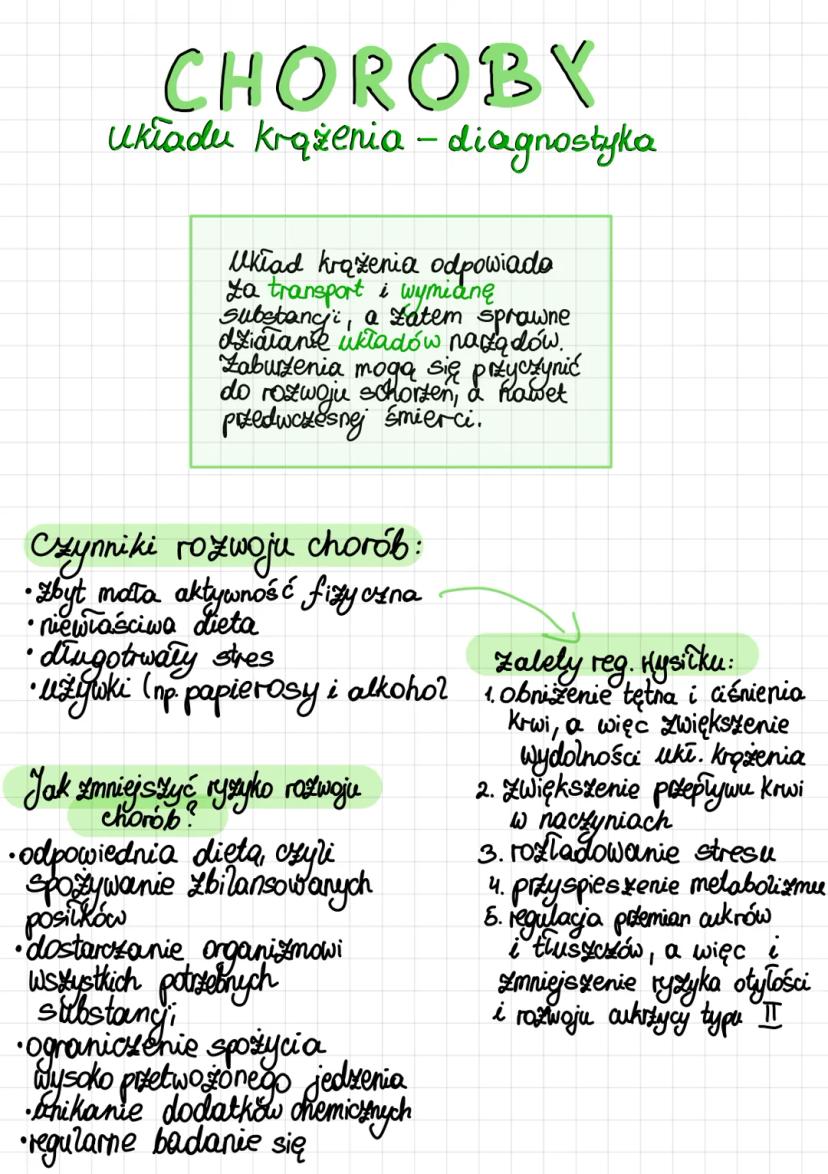 CHOROBY
Układu krążenia – diagnostyka
Układ krążenia odpowiada
za transport i wymianę
substancji, a zatem sprawne
działanie układów narządów.
Zaburzenia mogą się przyczynić
do rozwoju schorzeń, a nawet
przedwczesnej śmierci.
Czynniki rozwoju chorób:
•zbyt mała aktywność fizyczna
•niewłaściwa dieta
•długotrwały stres
•używki (np. papierosy i alkohol
Jak zmniejszyć ryzyko rozwoju
chorób?
•odpowiednia dieta, czyli
spożywanie zbilansowanych
posiłków
•dostarczanie organizmowi
wszystkich potrzebnych
substancji
•ograniczenie spożycia
wysoko przetwożonego jedzenia
•unikanie dodatków chemicznych
•regularne badanie się
Zalety reg. wysiłku:
1. obniżenie tętna i ciśnienia
krwi, a więc zwiększenie
wydolności ukł. krążenia
2. zwiększenie przepływu krwi
w naczyniach
3. rozładowanie stresu
4. przyspieszenie metabolizmu
5. regulacja przemian cukrów
i tłuszczów, a więc i
zmniejszenie ryzyka otyłości
i rozwoju cukrzycy typu II